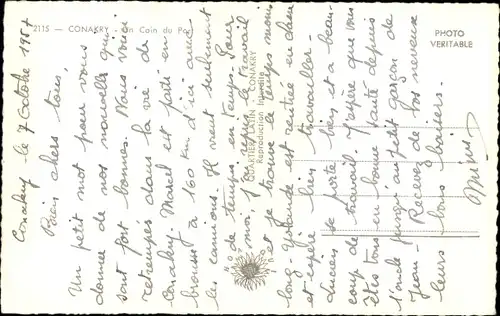 2115 — CONAKRY - Un Coin du Port
PHOTO
VERITABLE
QUARTIER LATIN - CONAKRY
Reproduction Interdite
Conakry le 7 Octobre 1957
Bien chers tous,
Un petit mot pour vous
donner de nos nouvelles qui
sont fort bonnes. Nous voici
retrempés dans la vie de
Conakry. Marcel est parti en
brousse à 160 km d'ici avec
les camions. Il vient seulement
de temps en temps. Pour
moi, j'ai repris le travail
et je trouve le temps moins
long. Yolande est rentrée en classe
et espère bien travailler
se porte bien et a beau-
coup de travail. J'espère que vous
êtes tous en bonne santé depuis
l'oncle jusqu'au petit garçon
Jean- Recevez de vos neveux
leurs bons baisers.